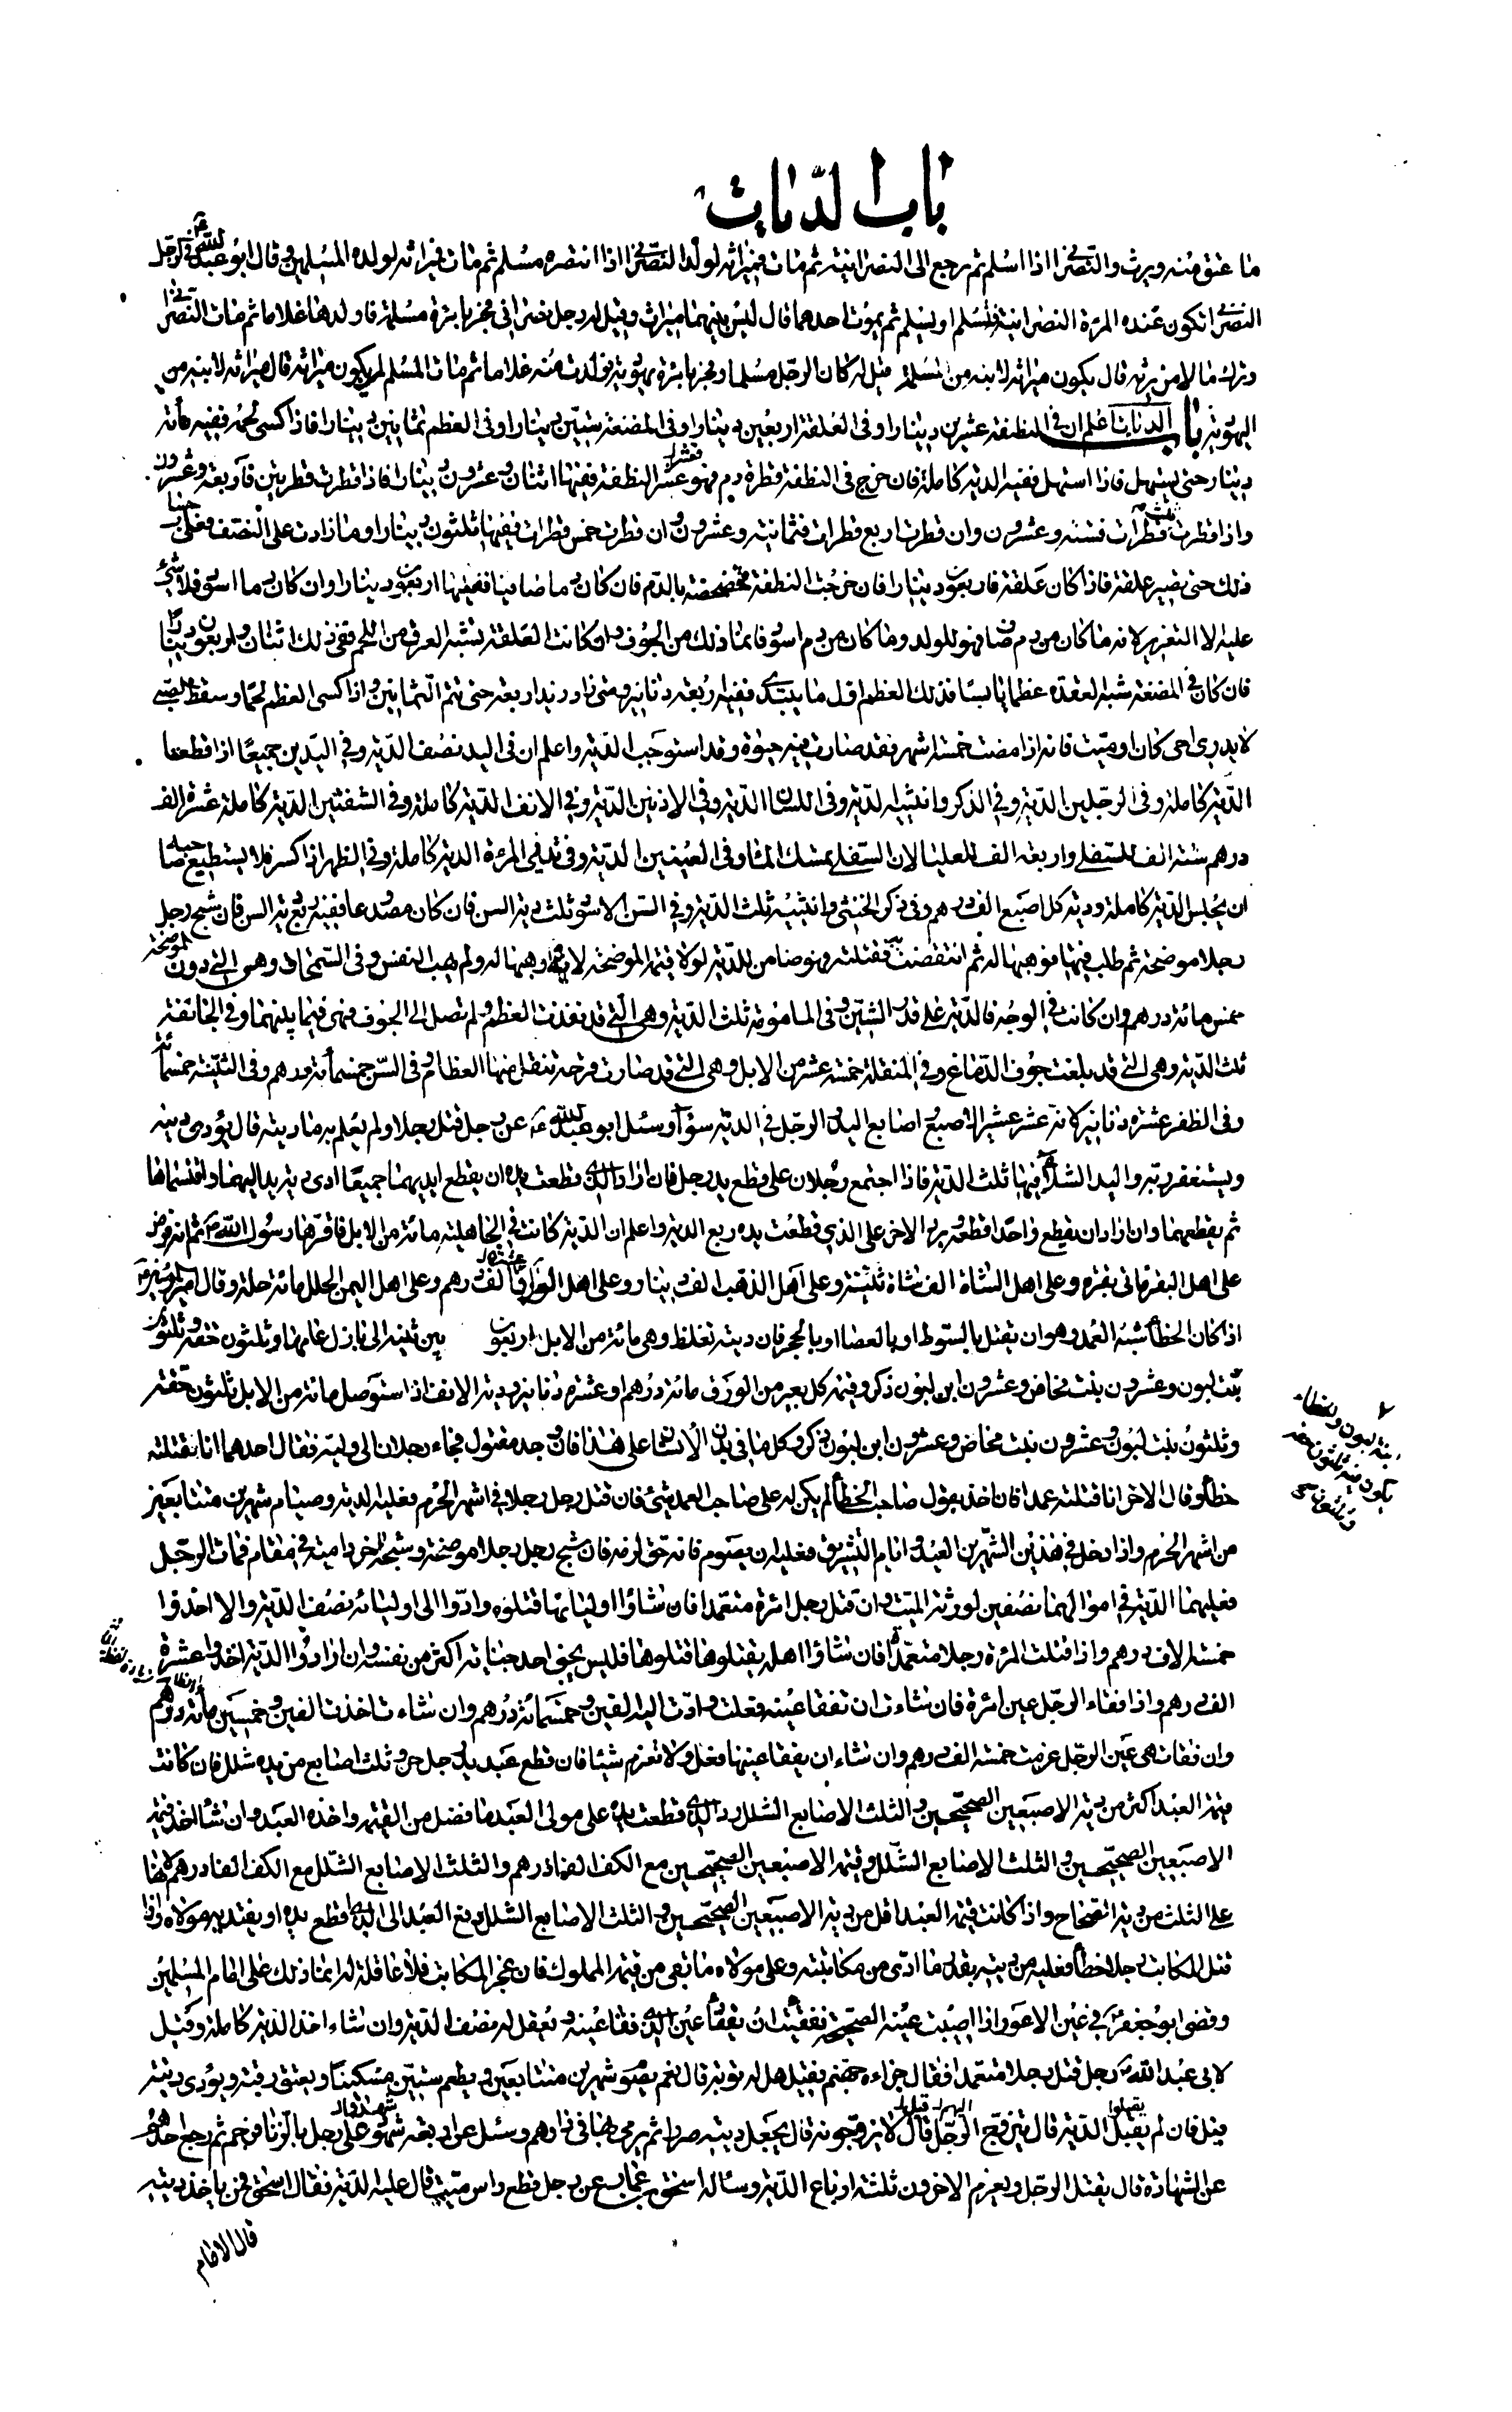 باب الديات
ما عتق منه ويرث والنصراني اذا اسلم ثم رجع الى النصرانية ثم مات فميراثه لولده النصراني اذا انتصر مسلم ثم مات فميراثه لولده المسلمين وقال ابو عبد الله ع في الرجل
النصراني تكون عنده المرءة النصرانية فتسلم او يسلم ثم يموت احدهما قال ليس بينهما ميراث وقيل له رجل نصراني فجر بامرءة مسلمة فاولدها غلاما ثم مات النصراني
وترك مالا من يرثه قال يكون ميراثه لابنه من المسلمة قيل له كان الرجل مسلما وفجر بامرءة يهودية فولدت منه غلاما ثم مات المسلم لمن يكون ميراثه قال ميراثه لابنه من
اليهودية باب الديات اعلم ان في النطفة عشرين دينارا وفي العلقة اربعين دينارا وفي المضغة ستين دينارا وفي العظم ثمانين دينارا فاذا كسي لحما ففيه مائة
دينار حتى يستهل فاذا استهل ففيه الدية كاملة فان خرج في النطفة قطرة دم فهو عشر النطفة ففيها اثنان وعشرون دينارا فاذا قطرت قطرتين فاربعة وعشرون
واذا قطرت ثلث قطرات فستة وعشرون وان قطرت اربع قطرات فثمانية وعشرون وان قطرت خمس قطرات ففيها ثلثون دينارا وما زادت على النصف فعلى حساب
ذلك حتى يصير علقة فاذا كان علقة فاربعون دينارا فان خرجت النطفة متخضخضة بالدم فان كان دما صافيا ففيها اربعون دينارا وان كان دما اسود فلا شيء
عليه الا التعزير لانه ما كان من دم صاف فهو للولد وما كان من دم اسود فانما ذلك من الجوف وان كانت العلقة تشبه العرق من اللحم ففي ذلك اثنان واربعون دينارا
فان كان في المضغة شبه العقدة عظما يابسا فذلك العظم اول ما يبتدى ففيه اربعة دنانير ومتى زاد زيد اربعة حتى تتم الثمانين واذا كسى العظم لحما وسقط الصبي
لا يدرى احى كان او ميت فانه اذا مضت خمسة اشهر فقد صارت فيه حيوة وقد استوجب الدية واعلم ان في اليد نصف الدية وفي اليدين جميعا اذا قطعتا
الدية كاملة وفي الرجلين الدية وفي الذكر وانثييه الدية وفي اللسان الدية وفي الاذنين الدية وفي الانف الدية كاملة وفي الشفتين الدية كاملة عشرة الف
درهم ستة الف للسفلى واربعة الف للعليا لان السفلى يمسك الماء وفي العينين الدية وفي ثديي المرءة الدية كاملة وفي الظهر اذا كسر فلا يستطيع صاحبه
ان يجلس الدية كاملة ودية كل اصبع الف درهم وفي ذكر الخنثى وانثييه ثلث الدية وفي السن الاسود ثلث دية السن فان كان مصدعا ففيه ربع دية السن فان شج رجل
رجلا موضحة ثم طلب فيها فوهبها له ثم انتقضت به فقتلته فهو ضامن للدية لولا قيمة الموضحة لانه وهبها له ولم يهب النفس وفي السمحاق وهي التي دون الموضحة
خمس مائة درهم وان كانت في الوجه فالدية على قدر الشين وفي المامومة ثلث الدية وهي التي قد نفذت العظم ولم تصل الى الجوف فهي فيما بينهما وفي الجائفة
ثلث الدية وهي التي قد بلغت جوف الدماغ وفي المنقلة خمسة عشر من الابل وهي التي قد صارت قرحة تنقل منها العظام وفي السن خمسمائة درهم وفي الثنية خمسمائة
وفي الظفر عشرة دنانير لانه عشر عشير الاصبع اصابع اليد والرجل في الدية سواء وسئل ابو عبد الله ع عن رجل قتل رجلا ولم يعلم به ما ديته قال يؤدى ديته
ويستغفر ربه واليد الشلاء فيها ثلث الدية فاذا اجتمع رجلان على قطع يد رجل فان اراد الذي قطعت يده ان يقطع ايديهما جميعا ادى دية يد اليهما واقتسماها
ثم يقطعهما وان اراد ان يقطع واحدا قطعه ويرد الاخر على الذي قطعت يده ربع الدية واعلم ان الدية كانت في الجاهلية مائة من الابل فاقرها رسول الله ص ثم انه فرض
على اهل البقر مأتي بقرة وعلى اهل الشاة الف شاة ثنية وعلى اهل الذهب الف دينار وعلى اهل الورق عشرة الف درهم وعلى اهل اليمن الحلل مائة حلة وقال امير المؤمنين ع
اذا كان الخطأ شبه العمد وهو ان يقتل بالسوط او بالعصا او بالحجر فان ديته تغلظ وهي مائة من الابل اربعون بين ثنية الى بازل عامها وثلثون حقة وثلثون
بنت لبون وعشرون بنت مخاض وعشرون ابن لبون ذكر وقيمة كل بعير من الورق مائة درهم او عشرة دنانير ودية الانف اذا استوصل مائة من الابل ثلثون حقة
وثلثون بنت لبون وعشرون بنت مخاض وعشرون ابن لبون ذكر وكل ما في بدن الانسان على هذا فان وجد مقتول فجاء رجلان الى وليه فقال احدهما انا قتلته
خطأ وقال الاخر انا قتلته عمدا فان اخذ بقول صاحب الخطأ لم يكن له على صاحب العمد شيء فان قتل رجل رجلا في اشهر الحرم فعليه الدية وصيام شهرين متتابعين
من اشهر الحرم واذا دخل في هذين الشهرين العيد وايام التشريق فعليه ان يصوم فانه حق لزمه فان شج رجل رجلا موضحة وشجه اخر دامية في مقام فمات الرجل
فعليهما الدية في اموالهما نصفين لورثة الميت وان قتل رجل امرءة متعمدا فان شاؤا اوليائها قتلوه وادوا الى اوليائه نصف الدية والا اخذوا
خمسة الاف درهم واذا قتلت المرءة رجلا متعمدا فان شاؤا اهله يقتلوها قتلوها فليس يجنى احد جناية اكثر من نفسه وان ارادوا الدية اخذوا عشرة
الف درهم واذا فقاء الرجل عين امرءة فان شاءت ان تفقا عينه فعلت وادت اليه الفين وخمسمائة درهم وان شاءت اخذت الفين وخمسين مائة درهم
وان فقات هي عين الرجل غرمت خمسة الف درهم وان شاء ان يفقا عينها فعل ولا تغرم شيئا فان قطع عبد يد رجل حر وثلث اصابع من يده شلل فان كانت
قيمة العبد اكثر من دية الاصبعين الصحيحين والثلث الاصابع الشلل رد الذي قطعت يده على مولى العبد ما فضل من القيمة واخذه العبد وان شاء اخذ قيمة
الاصبعين الصحيحين والثلث الاصابع الشلل وقيمة الاصبعين الصحيحين مع الكف الفا درهم والثلث الاصابع الشلل مع الكف الفا درهم لانها
على الثلث من دية الصحاح واذا كانت قيمة العبد اقل من دية الاصبعين الصحيحين والثلث الاصابع الشلل دفع العبد الى الذي قطع يده او يفتديه مولاه واذا
قتل المكاتب رجلا خطأ فعليه من ديته بقدر ما ادى من مكاتبته وعلى مولاه ما بقى من قيمة المملوك فان عجز المكاتب فلا عاقلة له انما ذلك على امام المسلمين
وقضى ابو جعفر ع في عين الاعور اذا اصيبت عينه الصحيحة ففقئت ان يفقأ عين الذي فقا عينه ويعقل له نصف الدية وان شاء اخذ الدية كاملة وقيل
لابي عبد الله ع رجل قتل رجلا متعمدا فقال جزاءه جهنم فقيل هل له توبة قال نعم يصوم شهرين متتابعين ويطعم ستين مسكينا ويعتق رقبة ويؤدى ديته
قيل فان لم يقبلوا الدية قال يتزوج اليهم قيل لا يزوجونه قال يجعل ديته صررا ثم يرمى بها في دارهم وسئل عن اربعة شهدوا على رجل بالزنا فرجم ثم رجع احدهم
عن الشهادة قال يقتل الرجل ويغرم الاخرون ثلثة ارباع الدية وساله اسحق بن عمار عن رجل قطع راس ميت قال عليه الدية فقال اسحق فمن ياخذ ديته
قال الامام